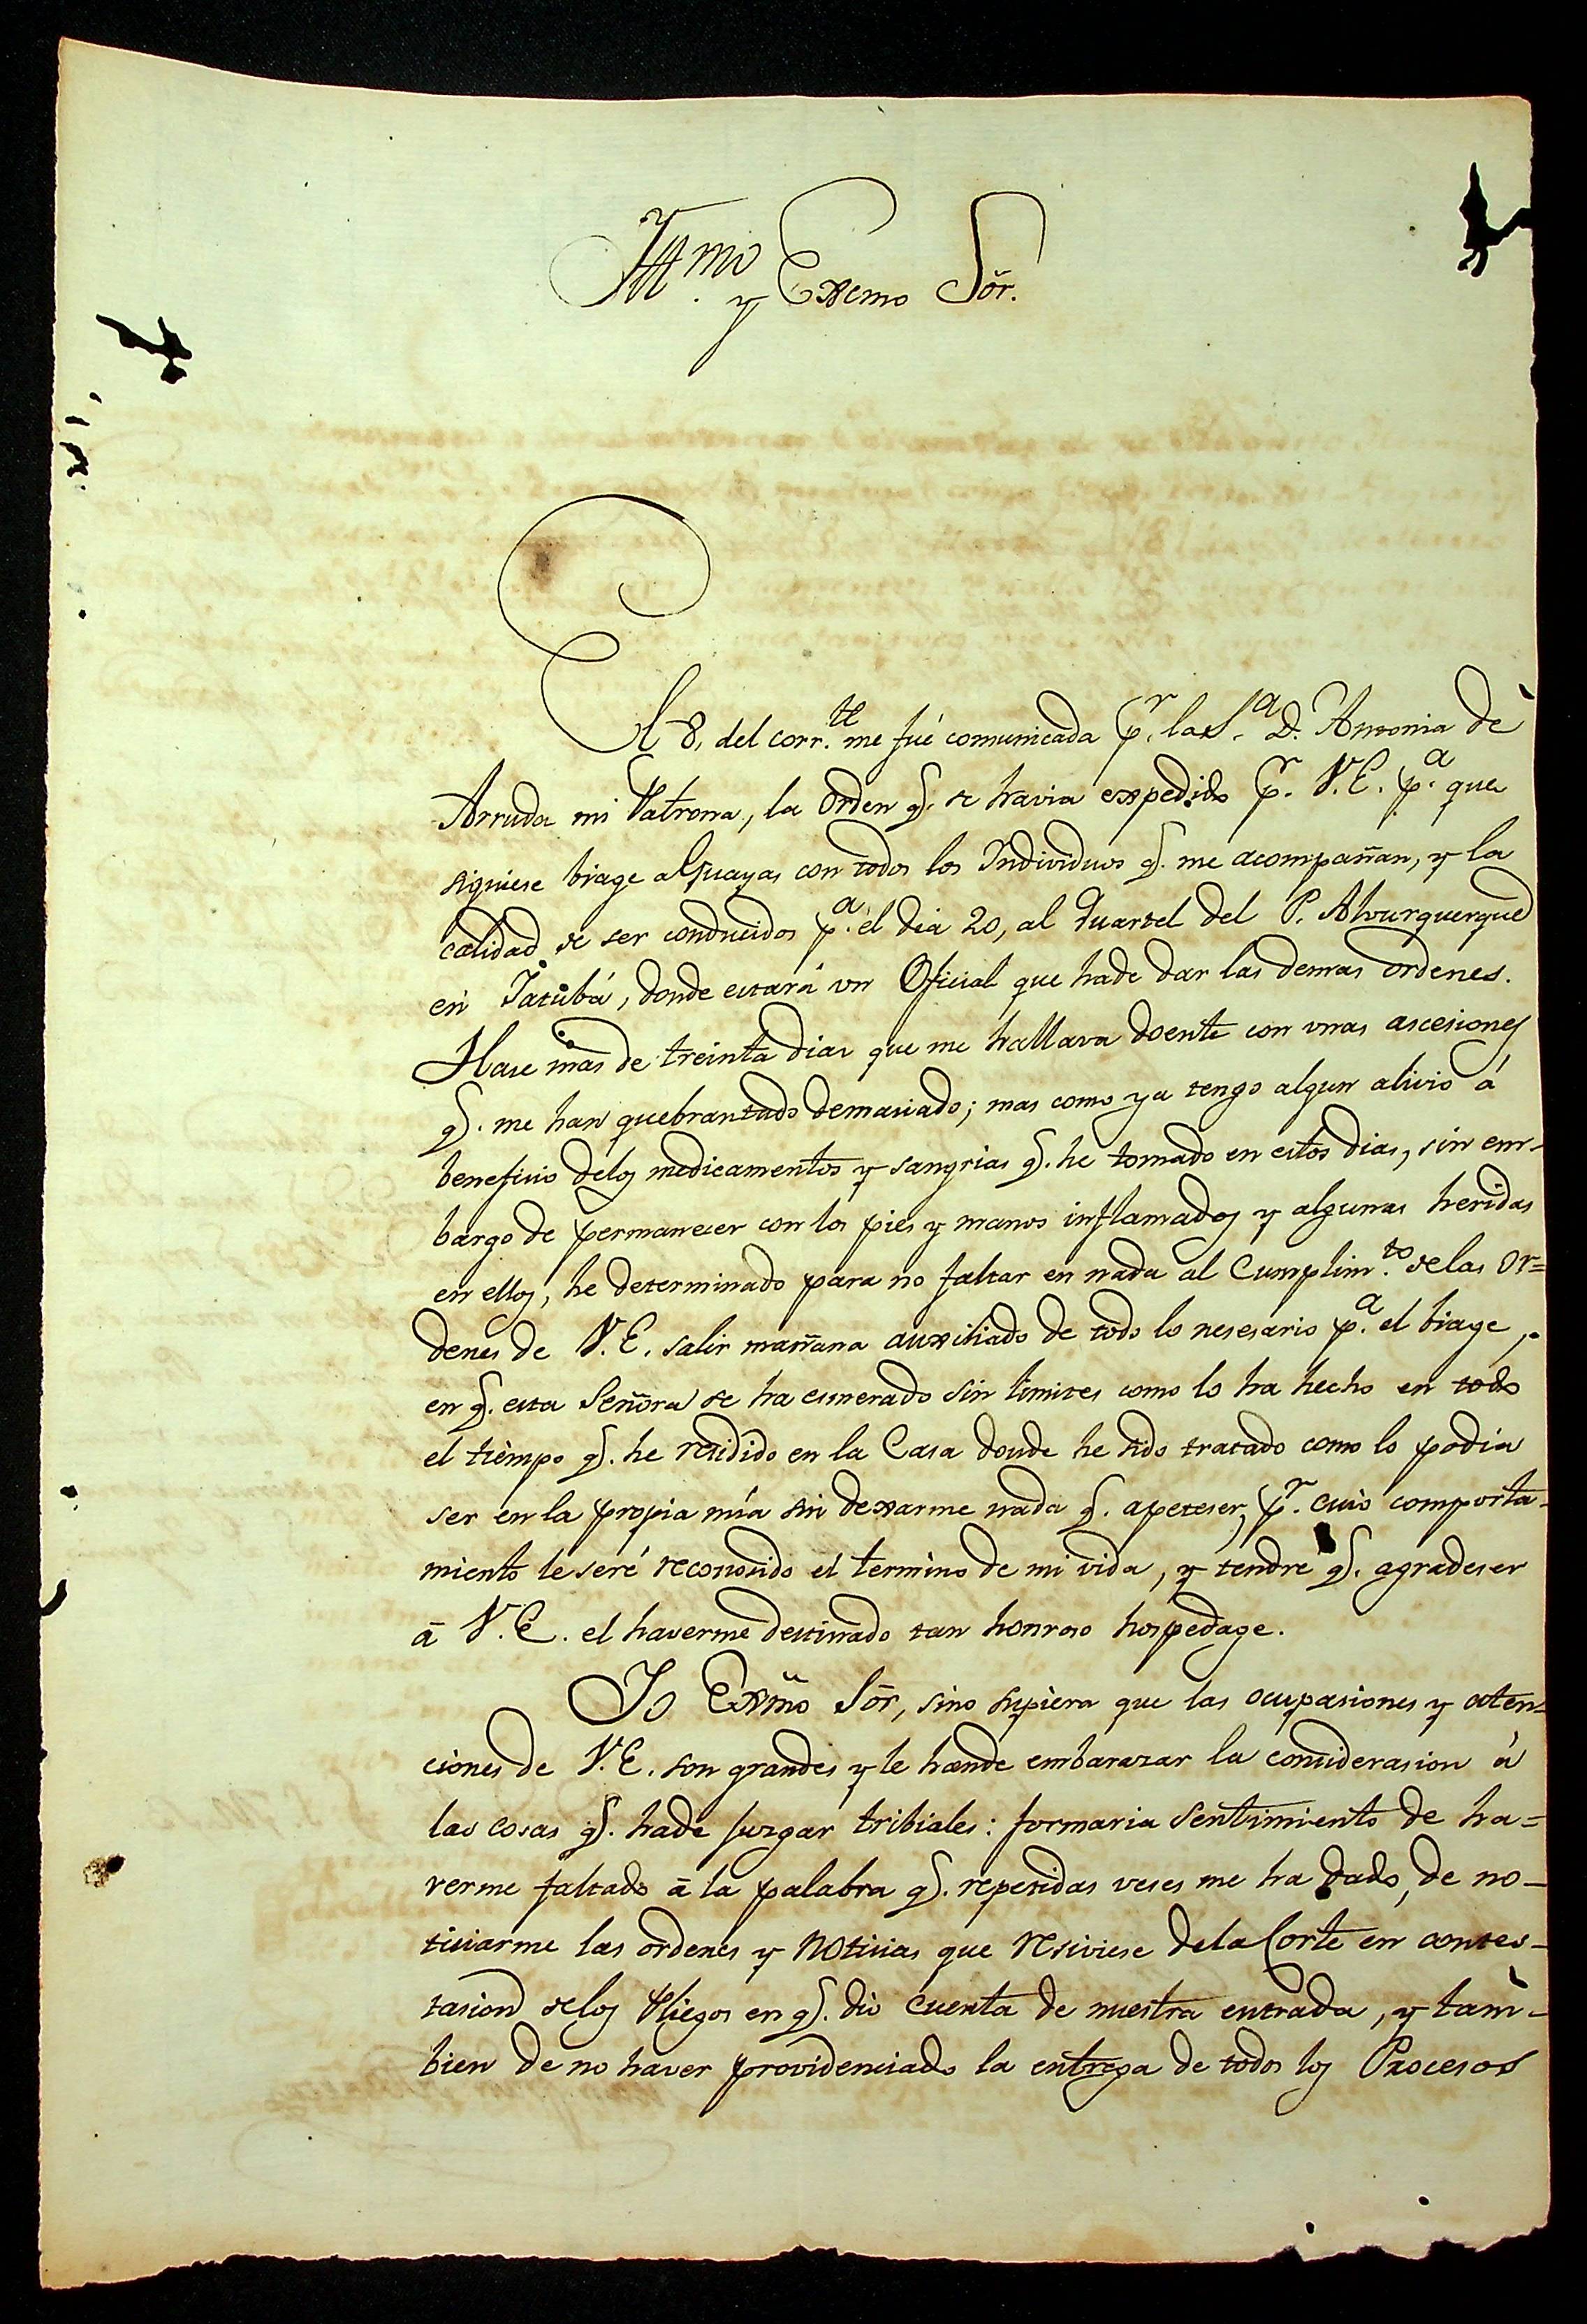 Ill.mo y Exemo Sõr.
El 8, del corr.te me fué comunicada p.r la S.a D. Antonia de
Arruda mi Patrona, la Orden q. se havia expedido p.r V.E. p.a que
siguiese biage al Guayas con todos los Individuos q. me acompañan, y la
calidad de ser conducidos p.a el dia 20, al Quartel del P. Alvurquerque
en Jatubá, donde estará vn Oficial que hade dar las demas ordenes.
Hase mas de treinta dias que me hallava doente con vnas ascesiones
q. me han quebrantado demasiado; mas como ya tengo algun alivio á
beneficio delos medicamentos y sangrias q. he tomado en estos dias, sin em-
bargo de permanecer con los pies y manos inflamados y algunas heridas
en ellos, he determinado para no faltar en nada al Cumplim.to delas Or=
denes de V.E. salir mañana auxiliado de todo lo nesesario p.a el biage,
en q. esta Señora se ha esmerado sin limites como lo ha hecho en todo
el tiempo q. he residido en la Casa donde he sido tratado como lo podia
ser en la propia mía sin dexarme nada q. apeteser, p.r cuio comporta-
miento le seré reconosido el termino de mi vida, y tendré q. agradeser
ā V.E. el haverme destinado tan honroso hospedage.
Yo Exmõ Sõr, sino supiera que las ocupasiones y aten-
ciones de V.E. son grandes y le hande embarazar la considerasion á
las cosas q. hade jusgar tribiales: formaria sentimiento de ha=
verme faltado ā la palabra q. repetidas veses me ha dado, de no-
ticiarme las ordenes y noticias que resiviese dela Corte en contes-
tasion delos Pliegos en q. dio cuenta de nuestra entrada, y tam-
bien de no haver providenciado la entrega de todos los Procesos